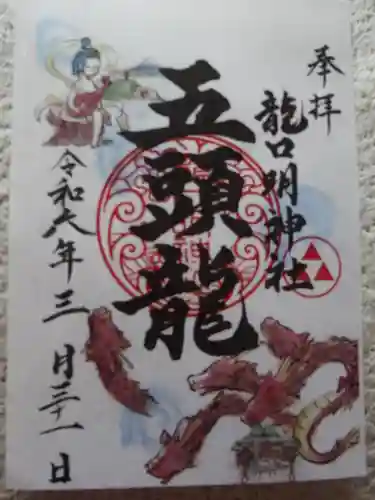 奉拝
龍口明神社
五頭龍
令和六年三月三十一日